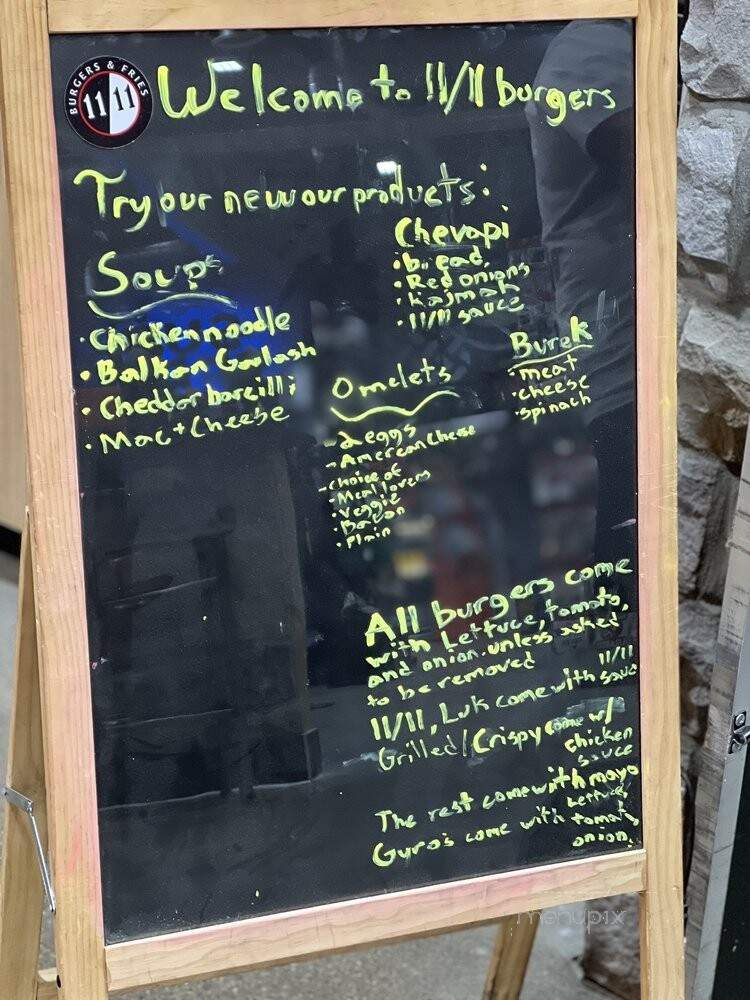 BURGERS & FRIES
11 11
Welcome to 11/11 burgers
Try our new our products:
Soups
• Chicken noodle
• Balkan Goulash
• Cheddar
• Mac + Cheese
Chevapi
• bread
• Red onions
• Kajmak
• 11/11 sauce
Burek
• meat
• cheese
• spinach
Omelets
- 2 eggs
- American Cheese
- choice of
• Meat lovers
• Veggie
• Bacon
• Plain
All burgers come
with Lettuce, tomato,
and onion. unless asked
to be removed
11/11, Luk come with 11/11 sauce
Grilled/Crispy come w/
chicken
sauce
The rest come with mayo
Gyro's come with Lettuce,
tomato,
onion.
menupix